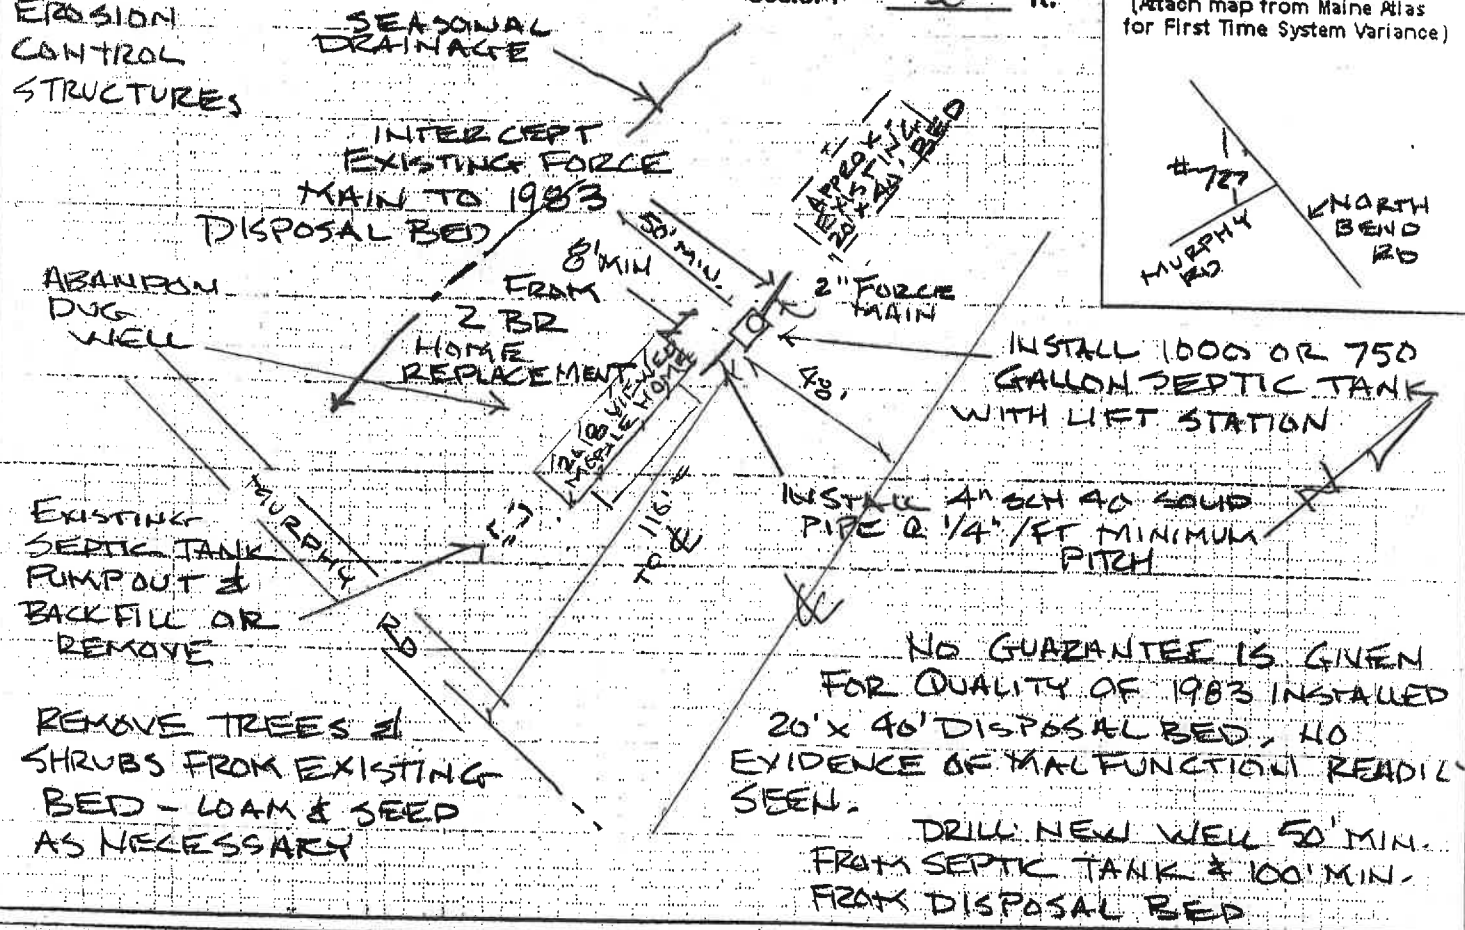 EROSION
CONTROL
STRUCTURES
SEASONAL
DRAINAGE
(Attach map from Maine Atlas
for First Time System Variance)
INTERCEPT
EXISTING FORCE
MAIN TO 1983
DISPOSAL BED
APPROX
EXISTING
20' x 40' BED
#727
MURPHY
RD
NORTH
BEND
RD
50' MIN.
8' MIN
FROM
2 BR
HOME
REPLACEMENT
2" FORCE
MAIN
ABANDON
DUG
WELL
MOBILE HOME
INSTALL 1000 OR 750
GALLON SEPTIC TANK
WITH LIFT STATION
48'
INSTALL 4" SCH 40 SOLID
PIPE @ 1/4" /FT MINIMUM
PITCH
TO 116'±
MURPHY
RD
EXISTING
SEPTIC TANK
PUMP OUT &
BACKFILL OR
REMOVE
REMOVE TREES &
SHRUBS FROM EXISTING
BED - LOAM & SEED
AS NECESSARY
NO GUARANTEE IS GIVEN
FOR QUALITY OF 1983 INSTALLED
20' x 40' DISPOSAL BED, NO
EVIDENCE OF MALFUNCTION READIL
SEEN.
DRILL NEW WELL 50' MIN.
FROM SEPTIC TANK & 100' MIN.
FROM DISPOSAL BED